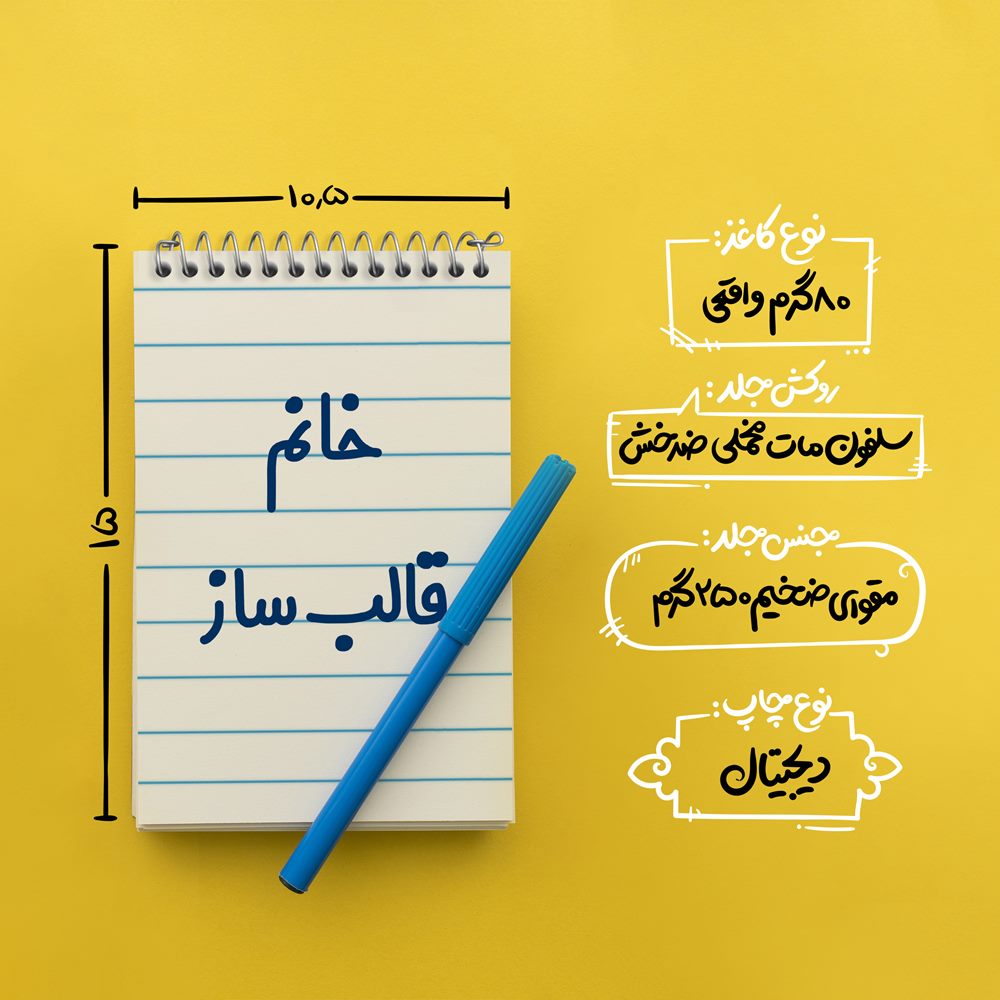 ۱۰,۵
۱۵
خانم
قالب ساز
نوع کاغذ:
۸۰گرم واقعی
روکش مجلد:
سلفون مات مخملی ضدخش
جنس مجلد:
مقوای ضخیم ۲۵۰گرم
نوع چاپ:
دیجیتال